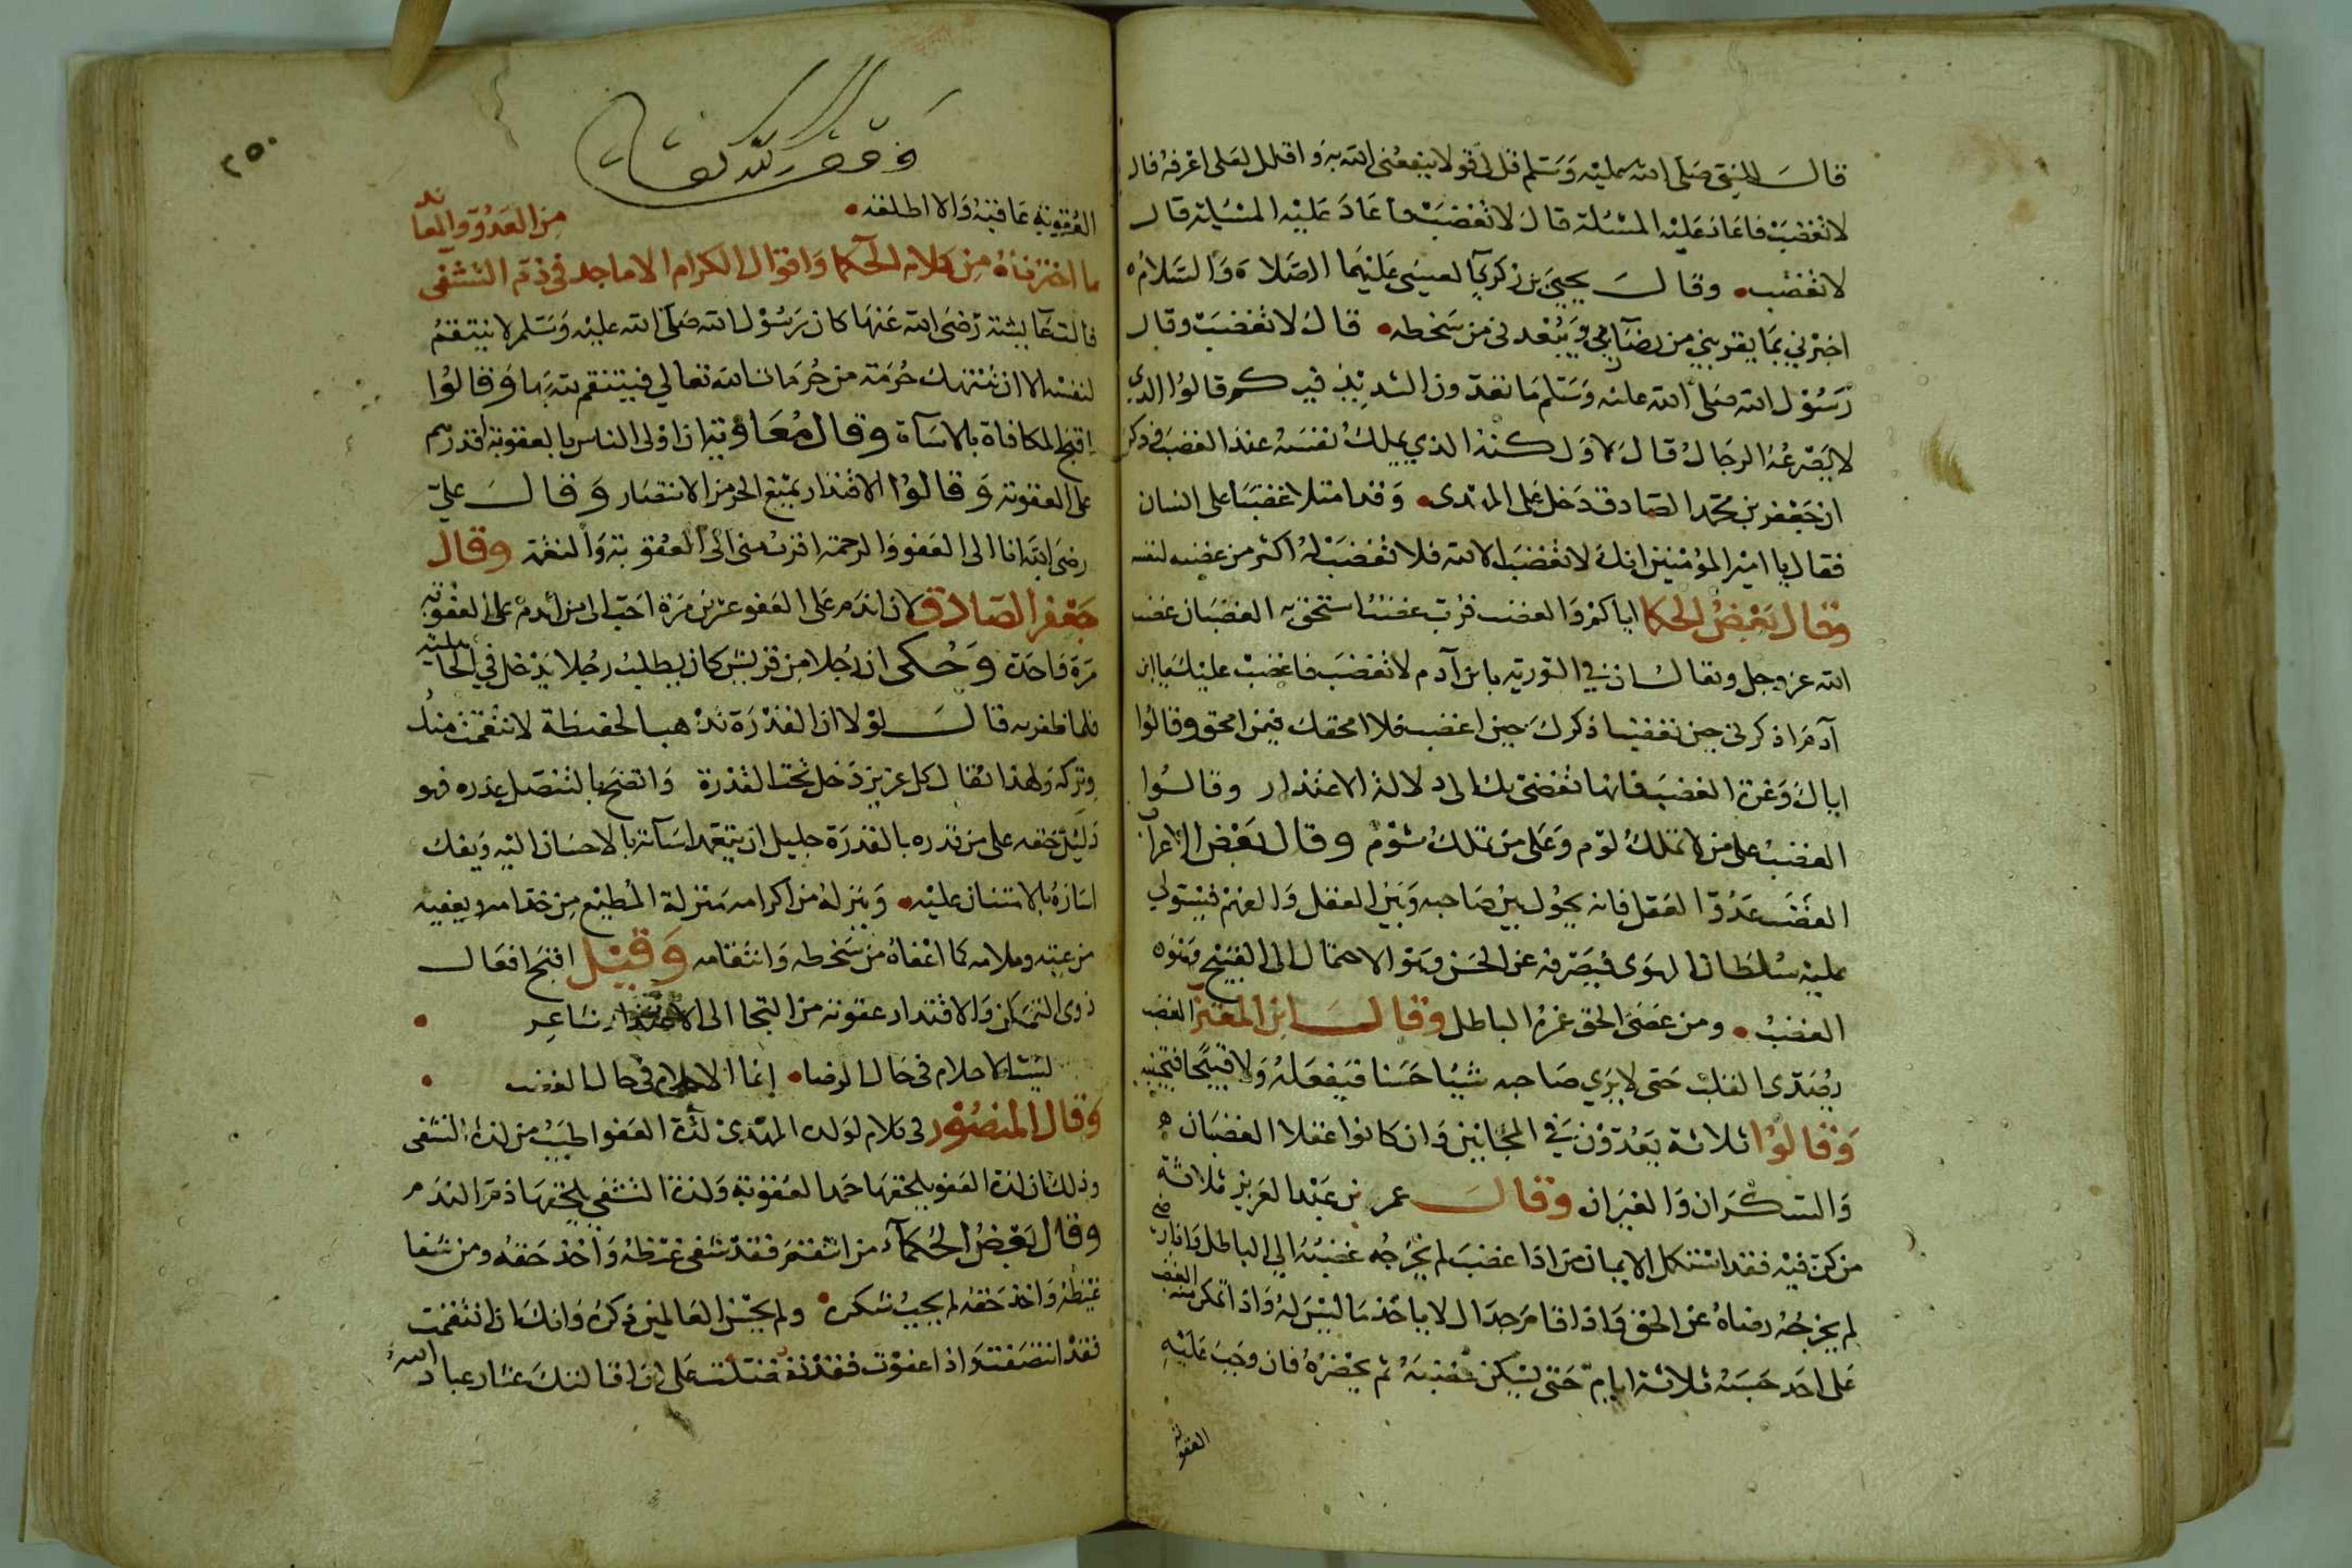 قال النبي صلى الله عليه وسلم قل لي قولا ينفعني الله به واقلل لعلي اعرفه قال
لا تغضب فاعاد عليه المسئلة قال لا تغضب فاعاد عليه المسئلة قال
لا تغضب • وقال يحيى بن زكريا لعيسى عليهما الصلاة والسلام
اخبرني بما يقربني من رضا ويبعدني من سخطه • قال لا تغضب وقال
رسول الله صلى الله عليه وسلم ما تعدون الشديد فيكم قالوا الذي
لا يصرعه الرجال قال لا ولكنه الذي يملك نفسه عند الغضب
ان جعفر بن محمد الصادق دخل على المهدى • وقد امتلا غضبا على انسان
فقال يا امير المؤمنين انك لا تغضب الا لله فلا تغضب له اكثر من غضبه لنفسه
وقال بعض الحكما اياكم والغضب فرب غضب استحق به الغضبان غضب
الله عز وجل ويقال ان في التورية يا بن آدم لا تغضب فاغضب عليك يا ابن
آدم اذكرني حين تغضب اذكرك حين اغضب فلا امحقك فيمن امحق وقالوا
اياك وعزة الغضب فانها تفضى بك الى دلالة الاعتذار وقالوا
الغضب على من لا تملك لوم وعلى من تملك شوم وقال بعض الاعراب
الغضب عدو العقل فانه يحول بين صاحبه وبين العقل والفهم فيستولي
عليه سلطان الهوى فيصرفه عن الحسن وهو الاحتمال الى القبيح وهو
الغضب • ومن عصى الحق غره الباطل وقال ابن المعتز الغضب
يصدى القلب حتى لا يرى صاحبه شيا حسنا فيفعله ولا قبيحا فيجتنبه
وقالوا ثلاثة يعدون في المجانين وان كانوا عقلا الغضبان
والسكران والغيران وقال عمر بن عبد العزيز ثلاثة
من كن فيه فقد استكمل الايمان من اذا غضب لم يخرجه غضبه الى الباطل واذا رضي
لم يخرجه رضاه عن الحق واذا قدر لا ياخذ ما ليس له واذا تمكن منه الغضب
على احد حبسه ثلاثة ايام حتى يسكن غضبه ثم يحضره فان وجب عليه
العقوبة
٢٥٠
وقف لله تعالى
العقوبة عاقبه والا اطلقه •
من العدو والمعاند
ما اخترناه من كلام الحكما واقوال الكرام الاماجد في ذم التشفى
قالت عايشة رضى الله عنها كان رسول الله صلى الله عليه وسلم لا ينتقم
لنفسه الا ان تنتهك حرمة من حرمات الله تعالى فينتقم لله بها وقالوا
اقبح المكافاة بالاساة وقال معاوية ان اولى الناس بالعقوبة اقدرهم
على العقوبة وقالوا الاقتدار يمنع الحر من الانتصار وقال علي
رضى الله انا الى العفو والرحمة اقرب منى الى العقوبة والنقمة وقال
جعفر الصادق لان اندم على العفو عشرين مرة احب الى من اندم على العقوبة
مرة واحدة وحكى ان رجلا من قريش كان يطلب رجلا بدخل في الجاهلية
فلما ظفر به قال لولا ان القدرة تذهب الحفيظة لانتقمت منك
وتركه ولهذا يقال كل عزيز دخل تحت القدرة واتضح بالتنصل عذره فهو
ذليل حقه على من قدره بالقدرة جليل ان يتعمد اسآته بالاحسان اليه ويفك
اساره بالامتنان عليه • وينزله من اكرامه منزلة المطيع من خدامه ويعفيه
من عتبه وملامه كما اعفاه من سخطه وانتقامه وقيل اقبح افعال
ذوى التمكن والاقتدار عقوبة من التجا الى الاعتذار شاعر •
ليست الاحلام في حال الرضا • إنما الاحلام في حال الغضب •
وقال المنصور في كلام لولده المهدى لذة العفو اطيب من لذة التشفى
وذلك ان لذة العفو يلحقها حمد العقوبة ولذة التشفي يلحقها ذم الندم
وقال بعض الحكمآء من انتقم فقد شفى غيظه واخذ حقه ومن شفا
غيظه واخذ حقه لم يجب شكره • ولم يحسن العالمين ذكره وانك ان انتقمت
فقد انتصفت واذا عفوت فقد تفضلت على ان اقالتك عثار عباد الله